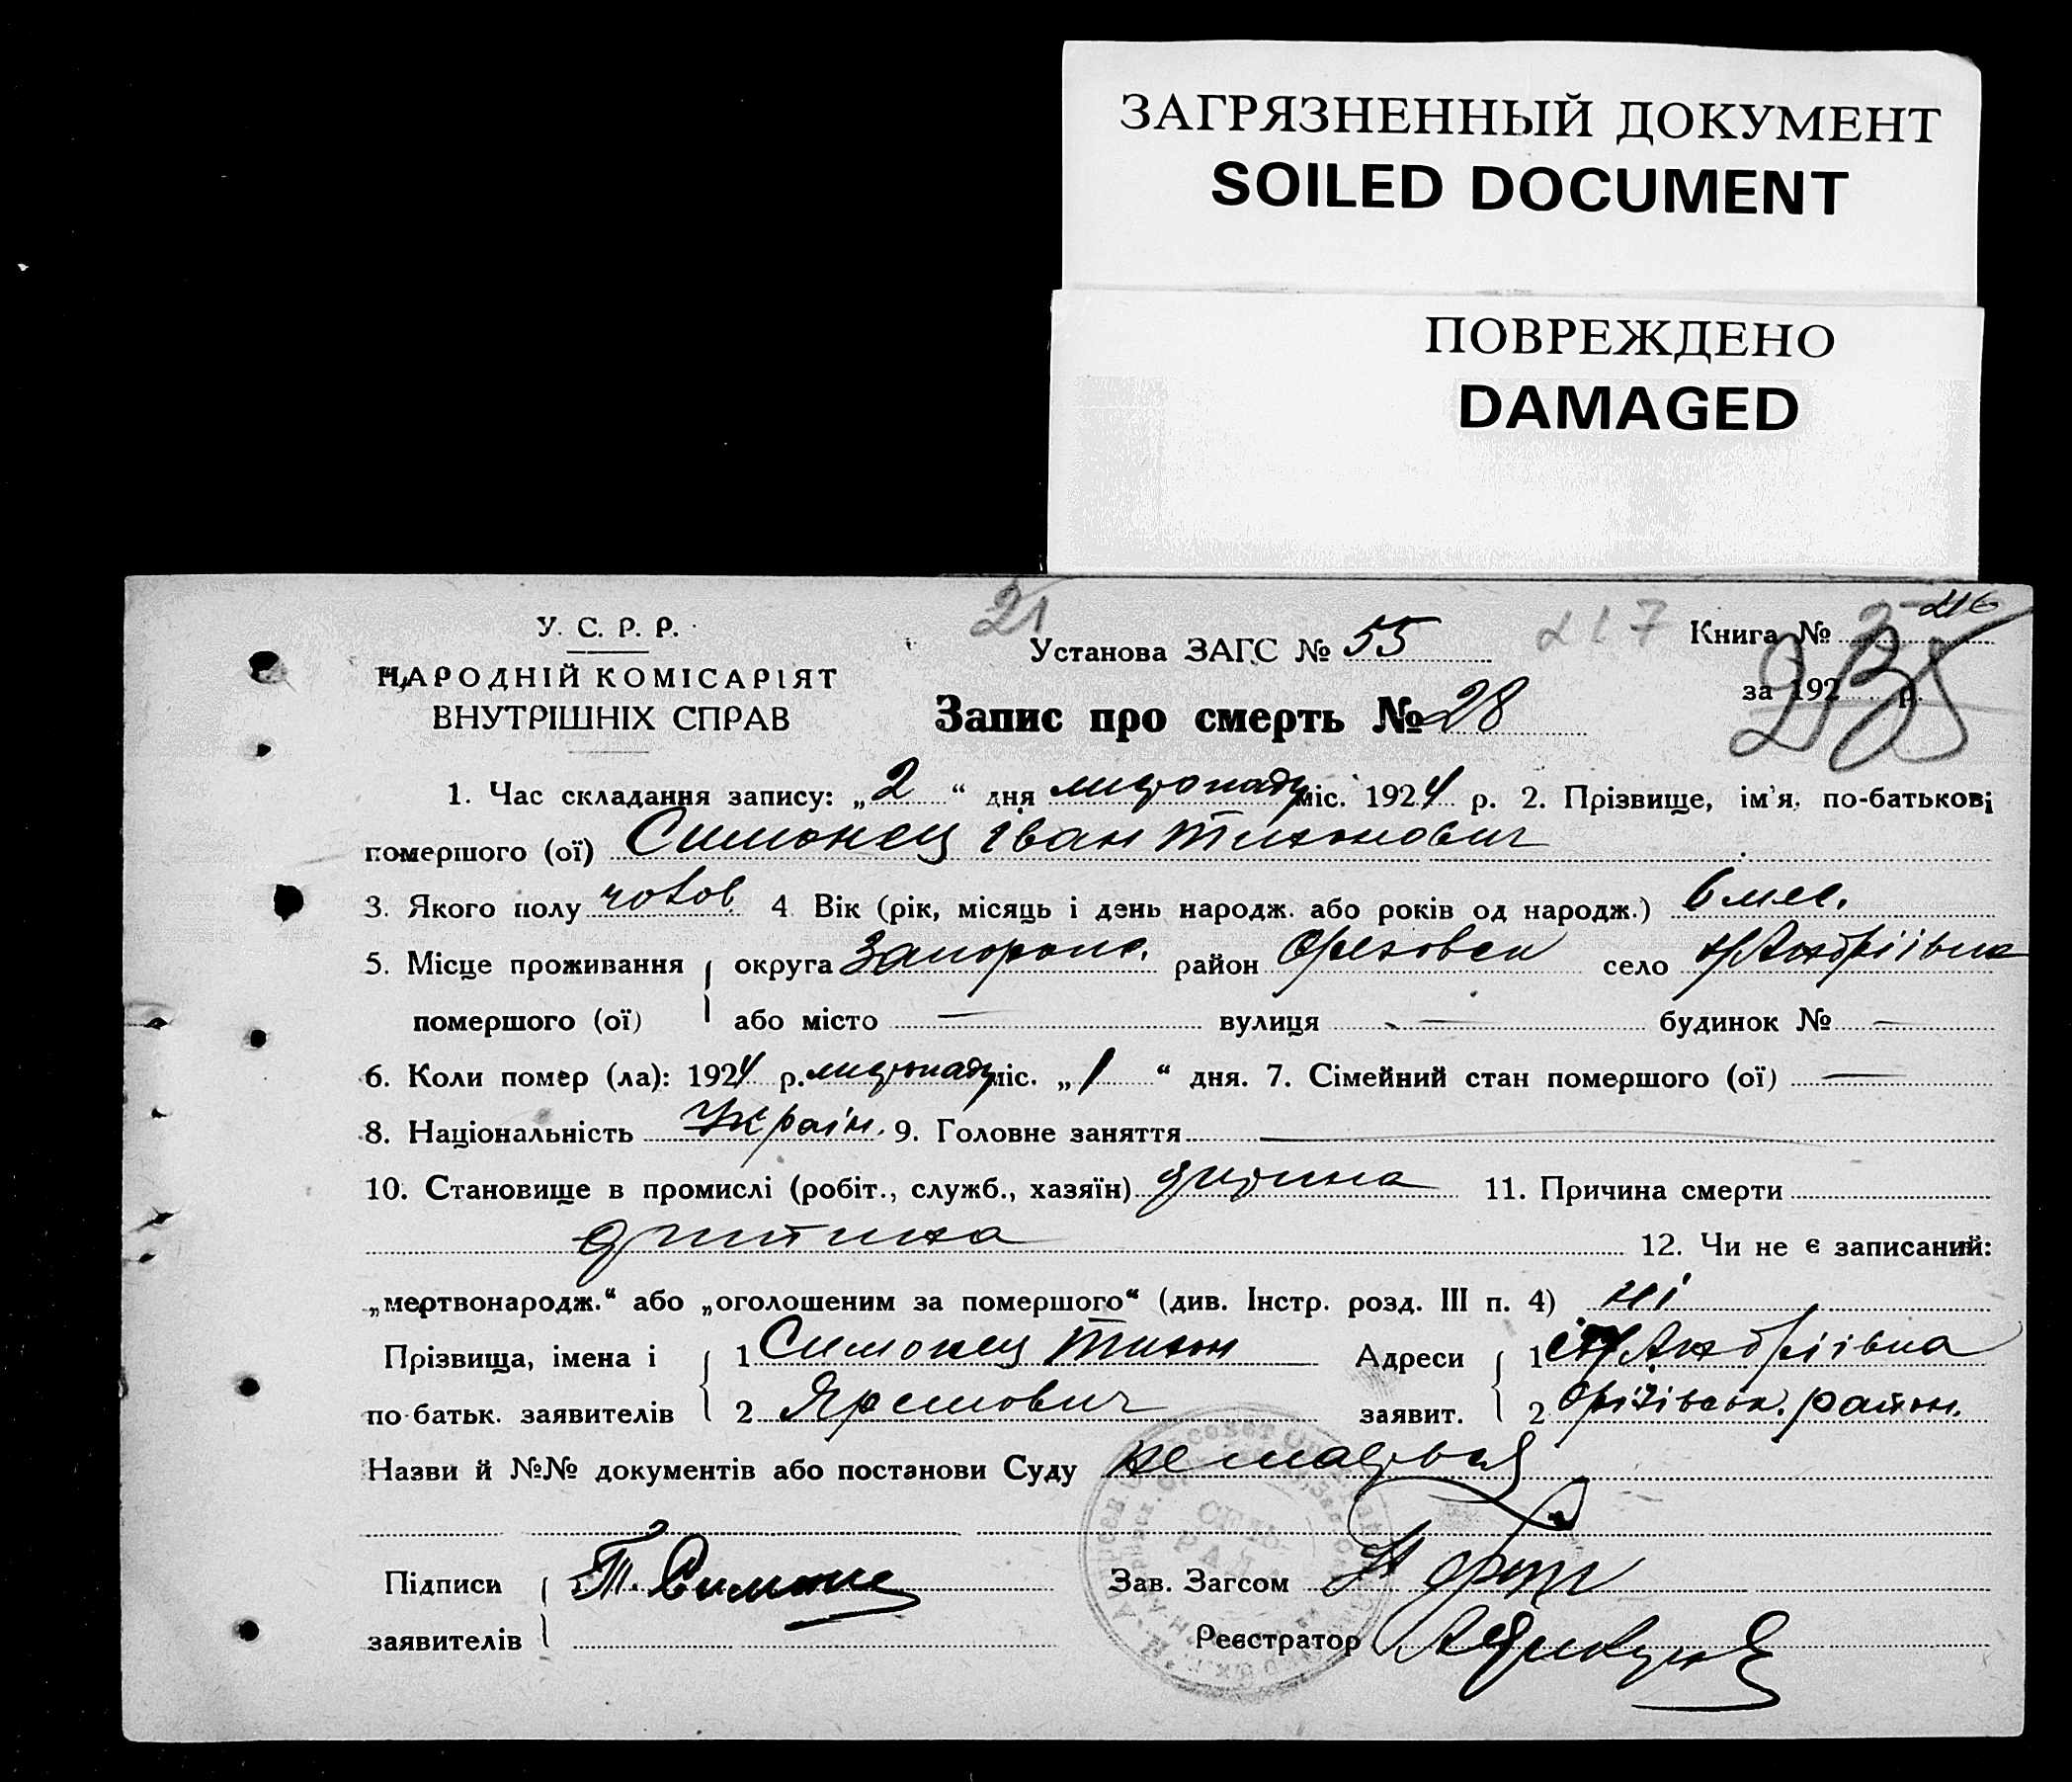 ЗАГРЯЗНЕННЫЙ ДОКУМЕНТ
SOILED DOCUMENT
ПОВРЕЖДЕНО
DAMAGED
21 217 216
У. С. Р. Р.
НАРОДНІЙ КОМІСАРІЯТ
ВНУТРІШНІХ СПРАВ
Установа ЗАГС № 55
Книга № 2
235
за 192 р.
Запис про смерть № 28
1. Час складання запису: „2“ дня листопаду міс. 1924 р. 2. Прізвище, ім'я, по-батькові
помершого (ої) Симонец Іван Тихонович
3. Якого полу чолов. 4 Вік (рік, місяць і день народж. або років од народж.) 6 мес.
5. Місце проживання округа Запорож. район Ореховск село Н/Андріівка
помершого (ої) або місто — вулиця — будинок № —
6. Коли помер (ла): 1924 р. листопаду міс. „1“ дня. 7. Сімейний стан помершого (ої) —
8. Національність Украін. 9. Головне заняття —
10. Становище в промислі (робіт., служб., хазяїн) дитина 11. Причина смерти
дитина 12. Чи не є записаний:
„мертвонародж.“ або „оголошеним за помершого“ (див. Інстр. розд. III п. 4) ні
Прізвища, імена і 1 Симонец Тихон Адреси 1 Н/Андріівка
по-батьк. заявителів 2 Яремович заявит. 2 Оріхівськ. район.
Назви й №№ документів або постанови Суду
Підписи Т. Симоне Зав. Загсом
заявителів Реєстратор